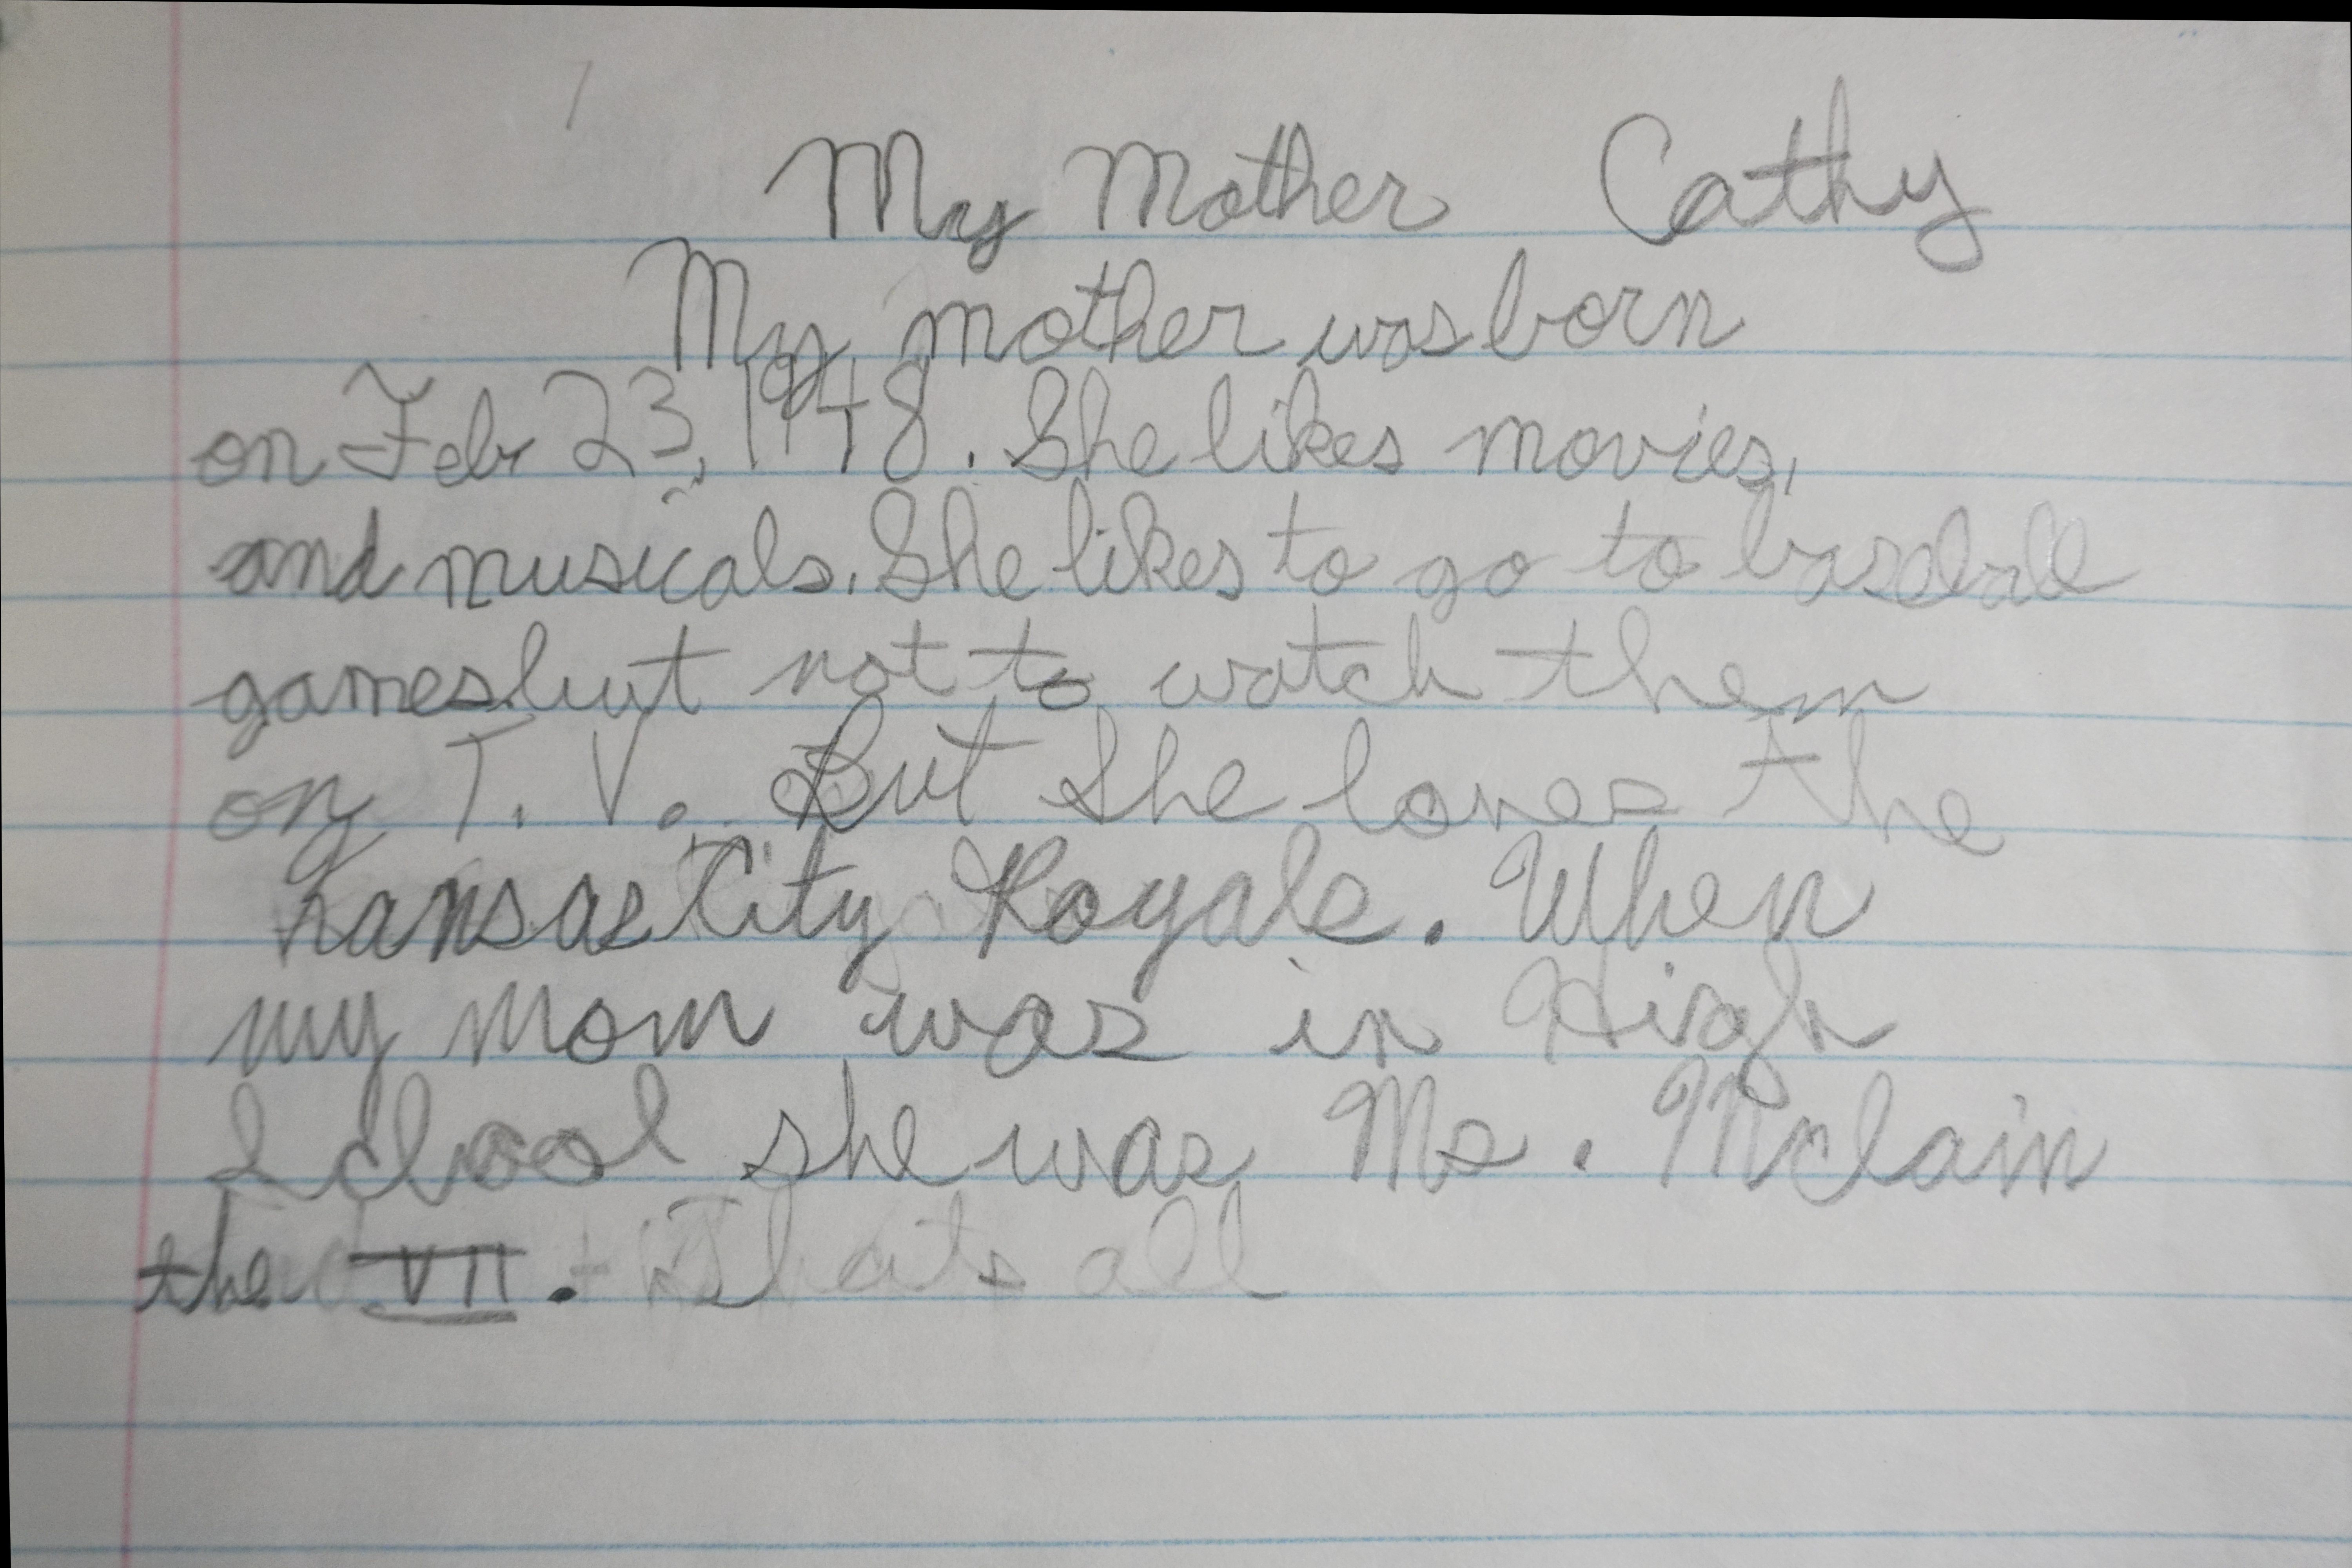 My Mother Cathy
My mother was born
on Feb 23, 1948. She likes movies,
and musicals. She likes to go to baseball
games but not to watch them
on T.V. But She loves the
Kansas City Royals. When
my Mom was in High
School she was Ms. Mclain
the VII. Thats all